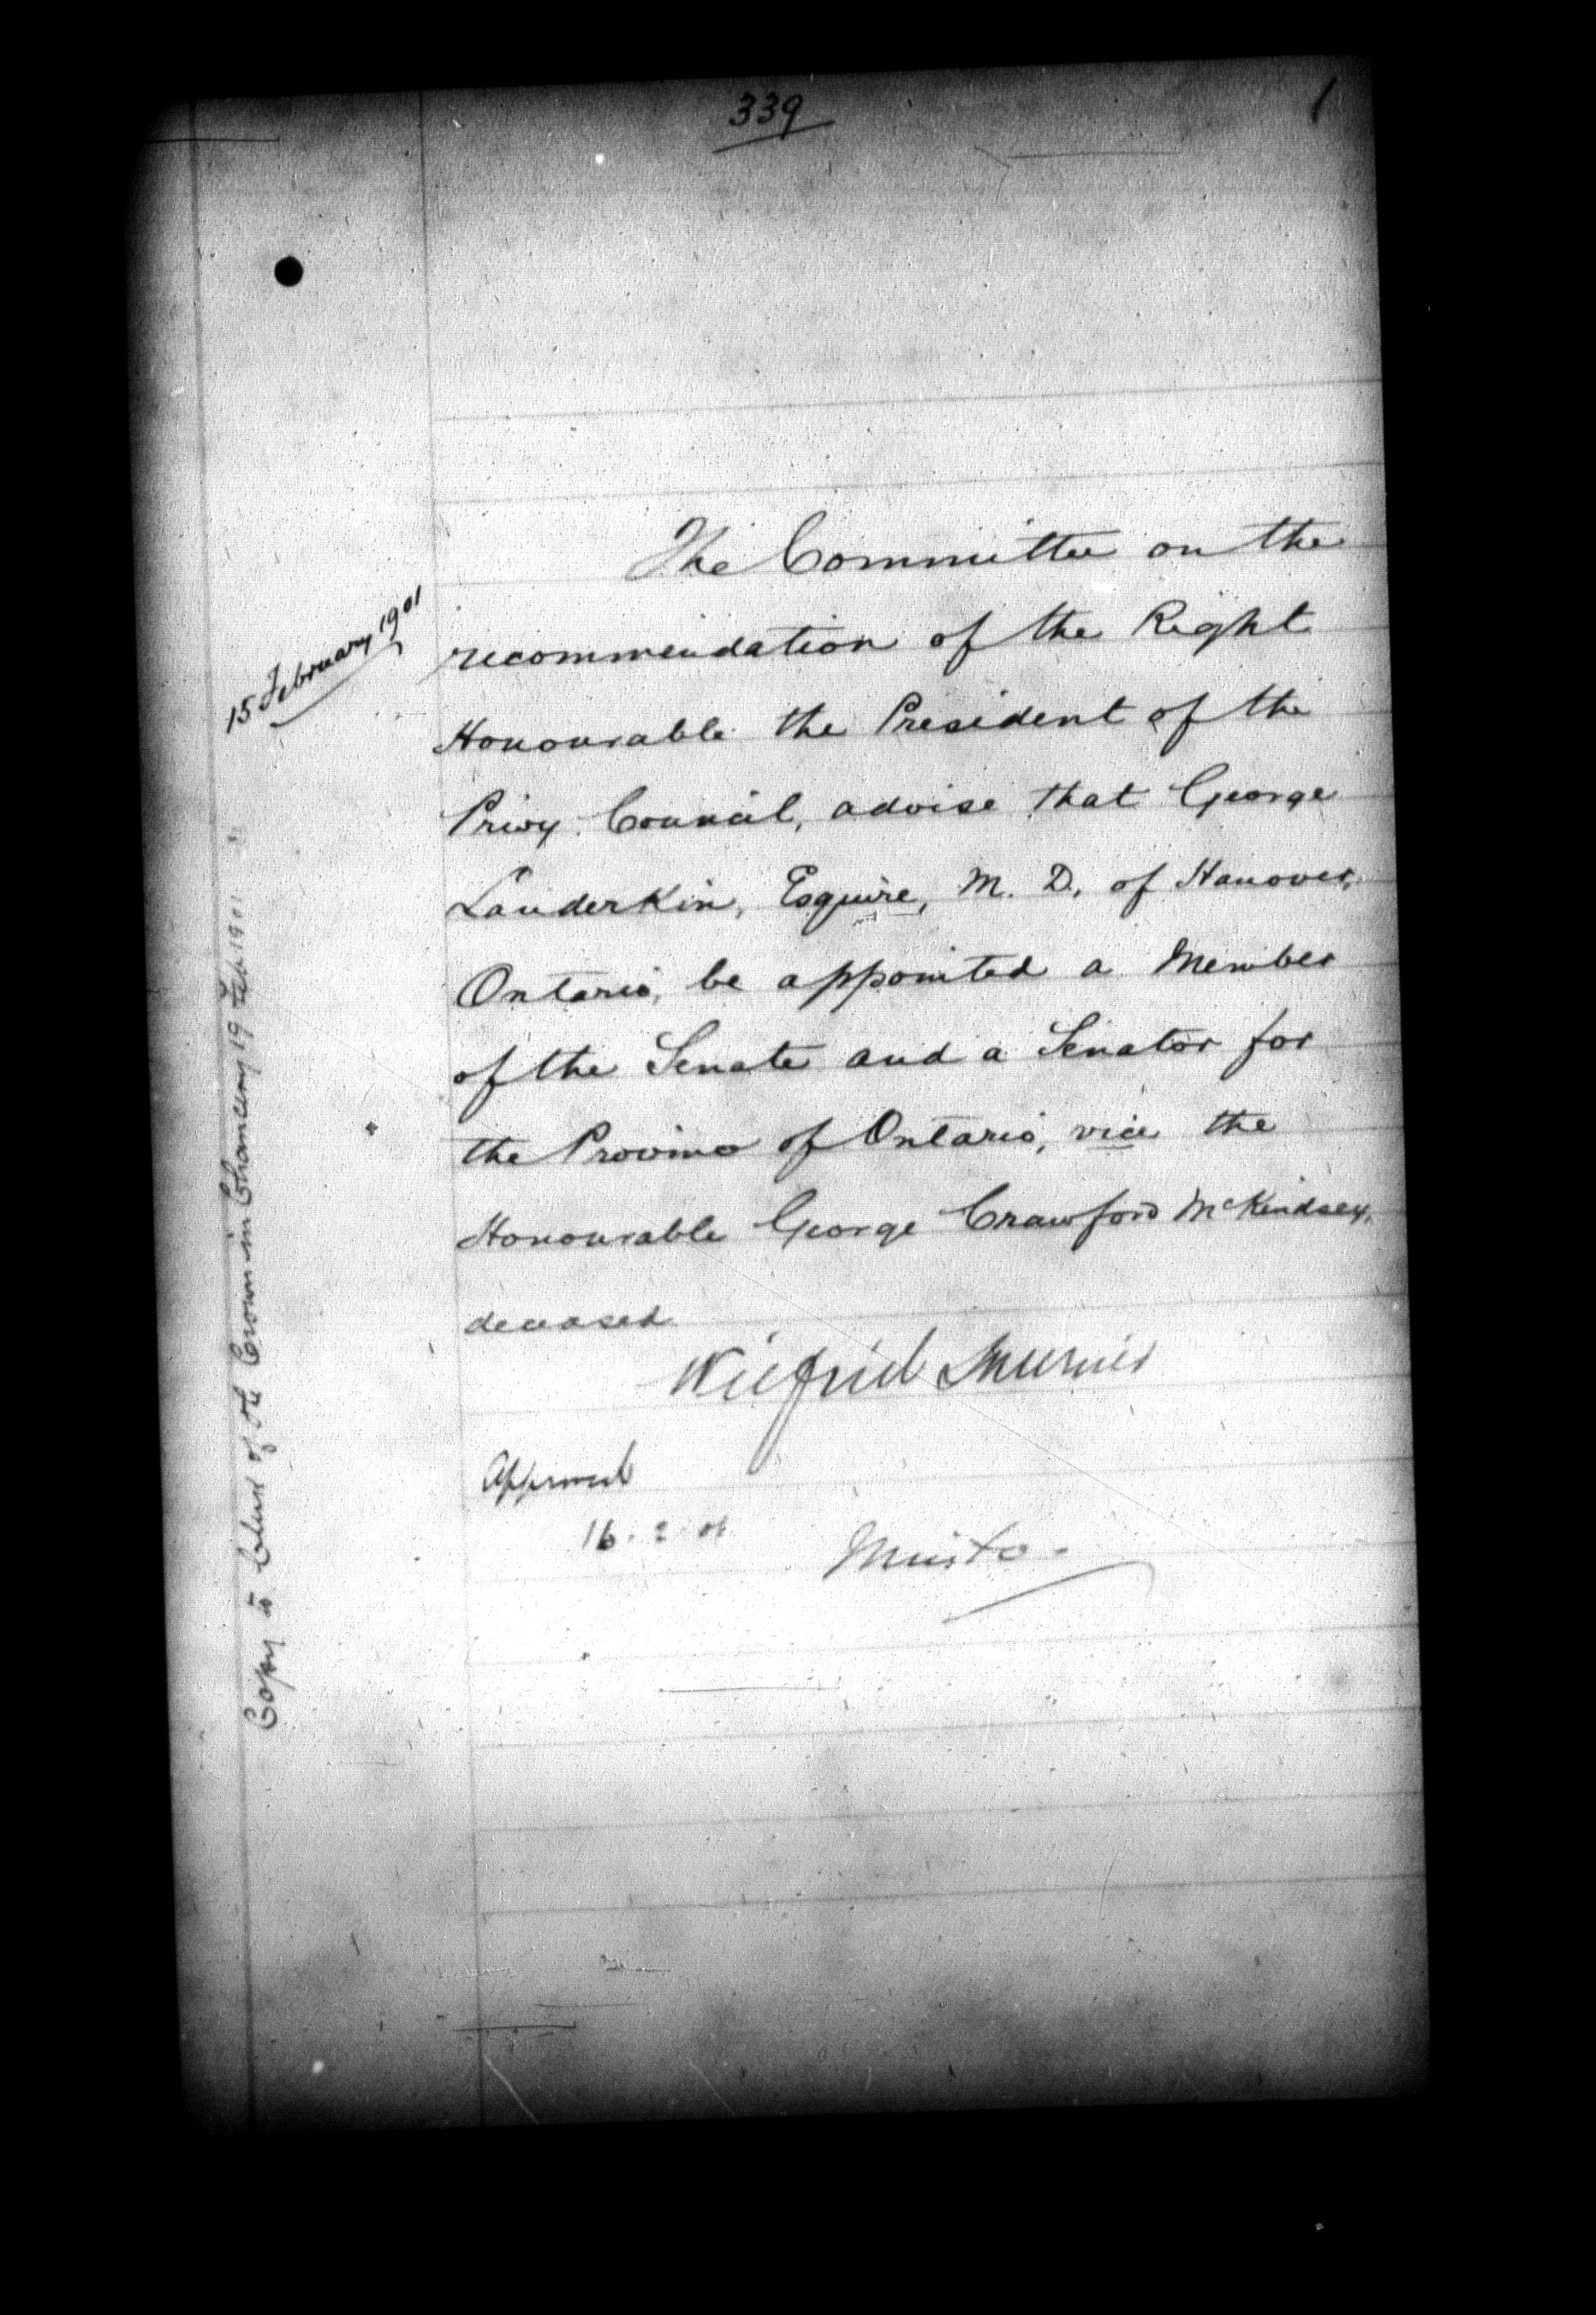 339
15 February 1901
The Committee on the
recommendation of the Right
Honourable the President of the
Privy Council, advise that George
Landerkin, Esquire, M. D., of Hanover,
Ontario, be appointed a Member
of the Senate and a Senator for
the Province of Ontario, vice the
Honourable George Crawford McKindsey,
deceased
Wilfrid Laurier
Approved
16. 2. 01
Minto
Copy to Clerk of the Crown in Chancery 19 Feb 1901